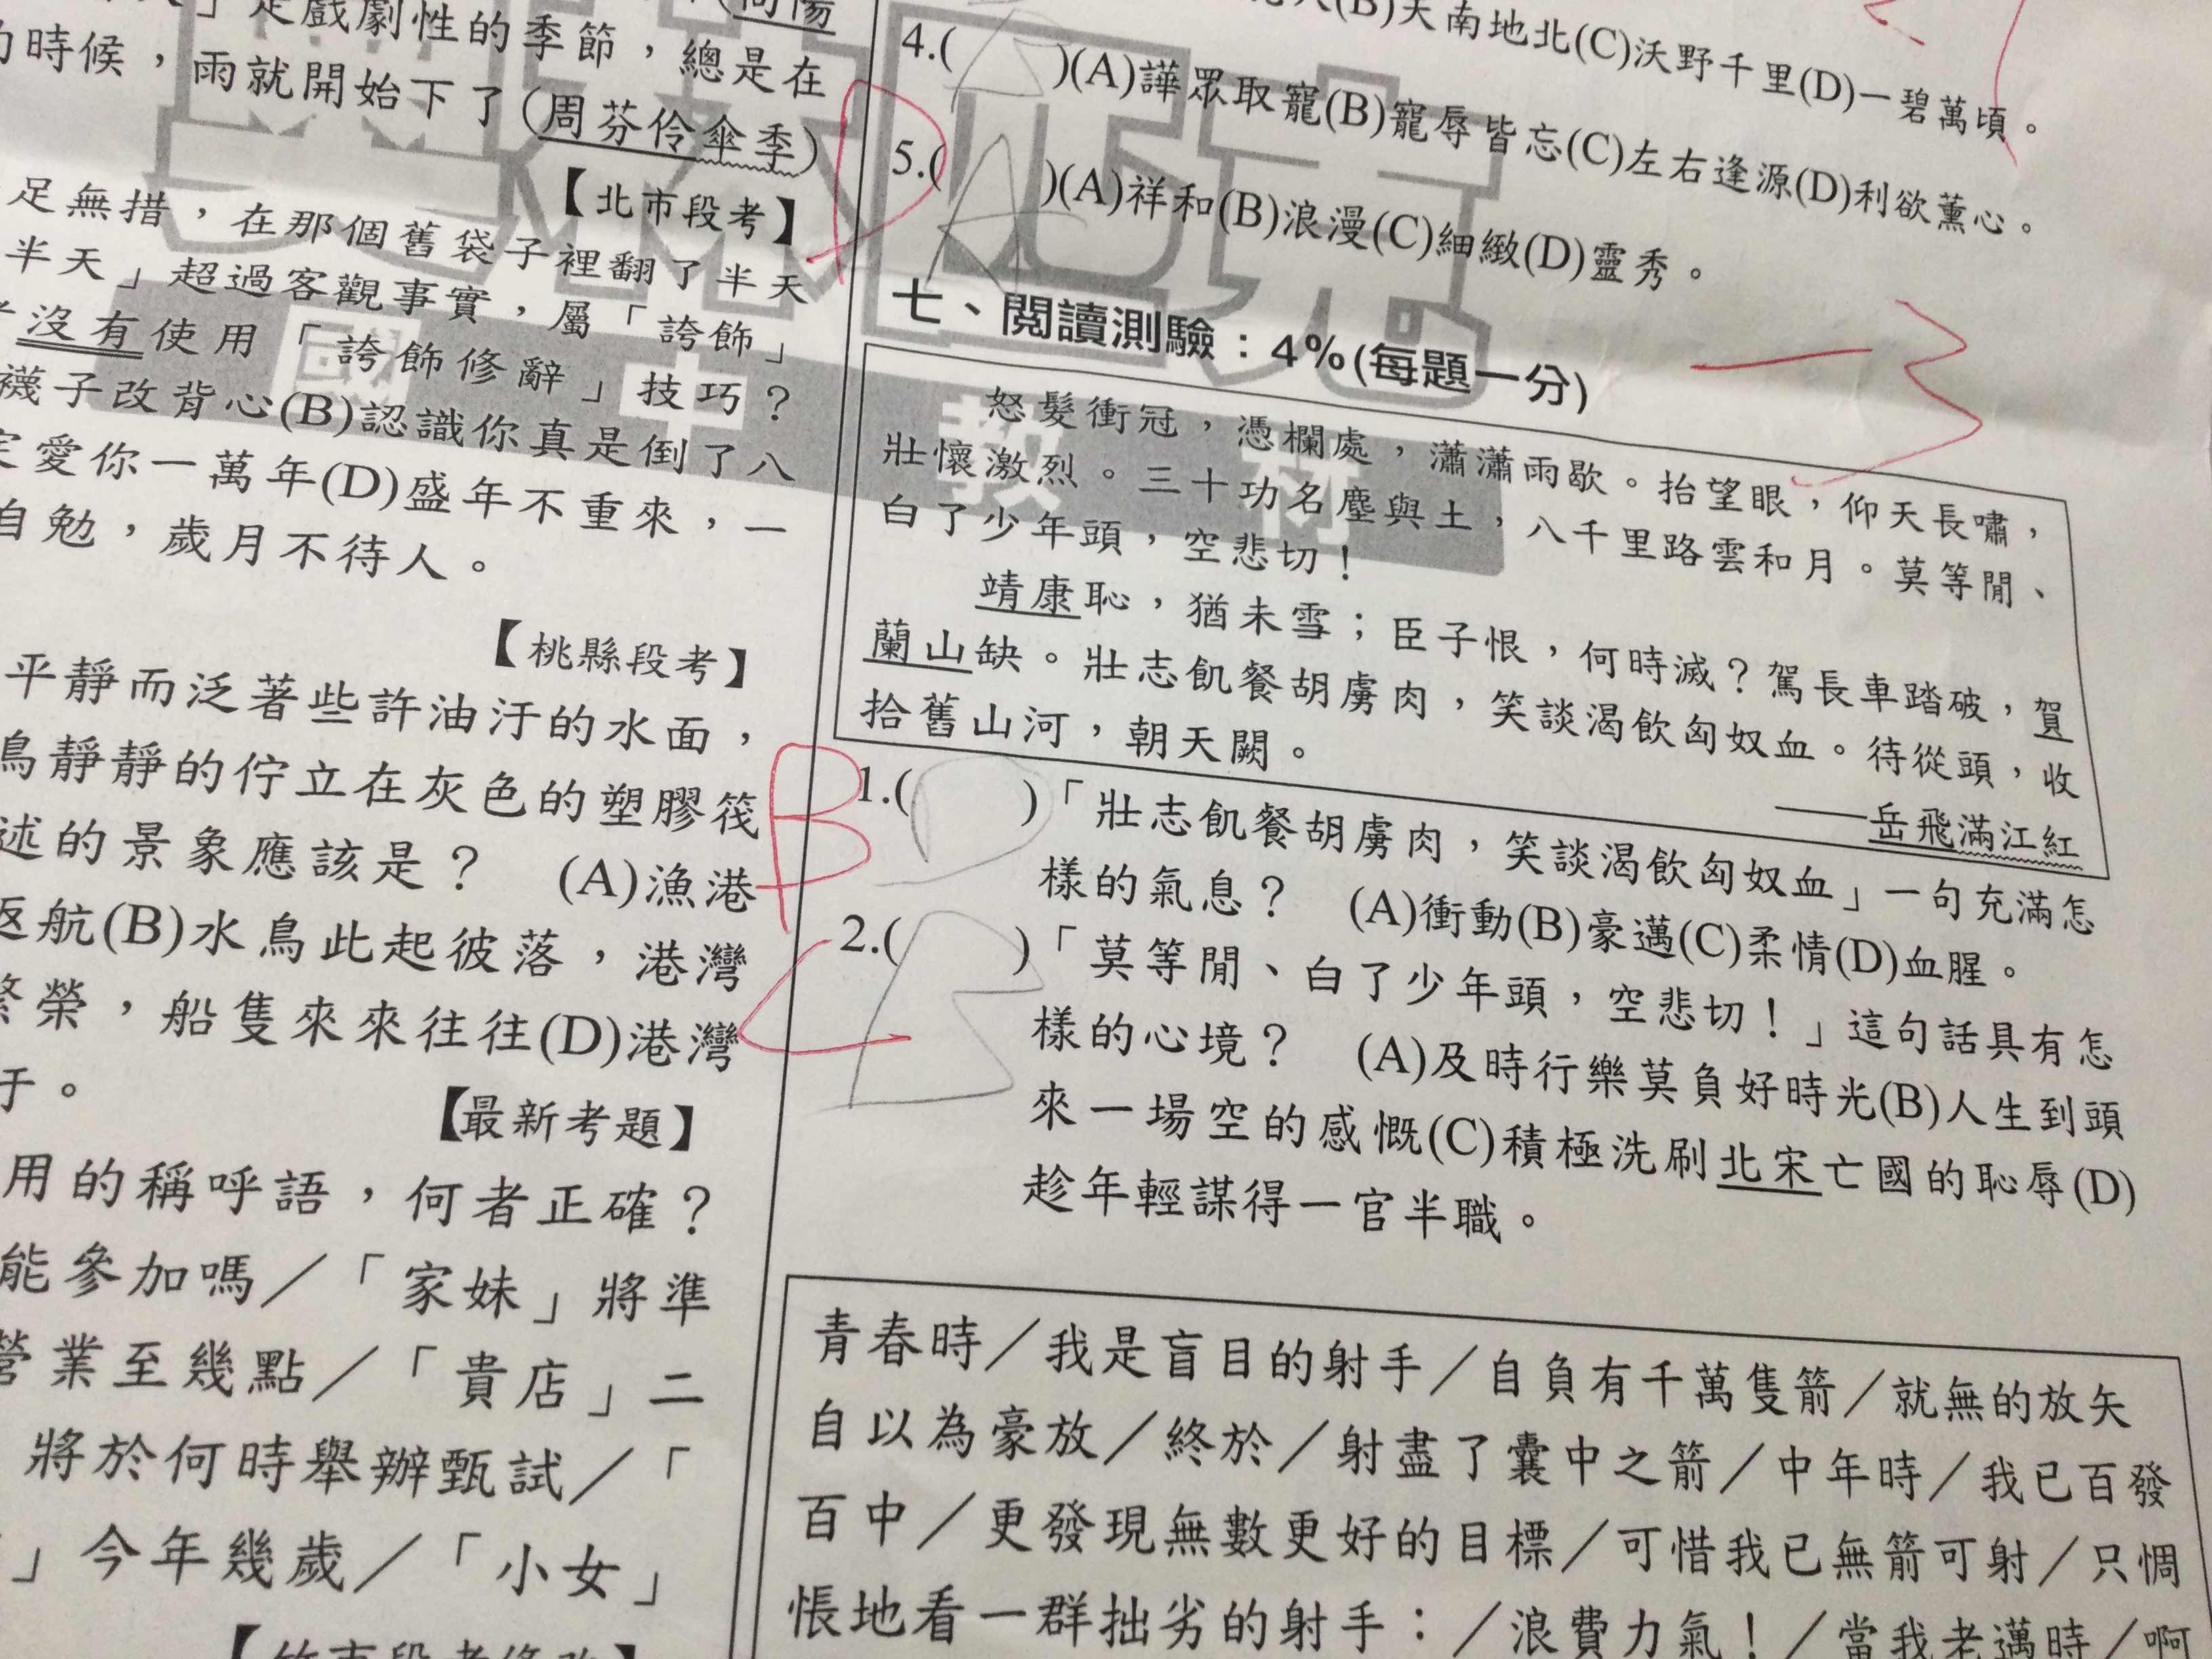 」是戲劇性的季節，總是在
的時候，雨就開始下了(周芬伶傘季)
【北市段考】
足無措，在那個舊袋子裡翻了半天
半天」超過客觀事實，屬「誇飾」
沒有使用「誇飾修辭」技巧？
襪子改背心(B)認識你真是倒了八
愛你一萬年(D)盛年不重來，一
自勉，歲月不待人。
【桃縣段考】
平靜而泛著些許油汙的水面，
鳥靜靜的佇立在灰色的塑膠筏
述的景象應該是？　(A)漁港
返航(B)水鳥此起彼落，港灣
繁榮，船隻來來往往(D)港灣
于。
【最新考題】
用的稱呼語，何者正確？
能參加嗎／「家妹」將準
營業至幾點／「貴店」二
將於何時舉辦甄試／「
」今年幾歲／「小女」
(B)天南地北(C)沃野千里(D)一碧萬頃。
4.(　)(A)譁眾取寵(B)寵辱皆忘(C)左右逢源(D)利欲薰心。
D
5.(A)(A)祥和(B)浪漫(C)細緻(D)靈秀。
七、閱讀測驗：4%(每題一分)
-3
怒髮衝冠，憑欄處，瀟瀟雨歇。抬望眼，仰天長嘯，
壯懷激烈。三十功名塵與土，八千里路雲和月。莫等閒、
白了少年頭，空悲切！
靖康恥，猶未雪；臣子恨，何時滅？駕長車踏破，賀
蘭山缺。壯志飢餐胡虜肉，笑談渴飲匈奴血。待從頭，收
拾舊山河，朝天闕。
——岳飛滿江紅
B
1.(D)「壯志飢餐胡虜肉，笑談渴飲匈奴血」一句充滿怎
樣的氣息？　(A)衝動(B)豪邁(C)柔情(D)血腥。
C
2.(B)「莫等閒、白了少年頭，空悲切！」這句話具有怎
樣的心境？　(A)及時行樂莫負好時光(B)人生到頭
來一場空的感慨(C)積極洗刷北宋亡國的恥辱(D)
趁年輕謀得一官半職。
青春時／我是盲目的射手／自負有千萬隻箭／就無的放矢
自以為豪放／終於／射盡了囊中之箭／中年時／我已百發
百中／更發現無數更好的目標／可惜我已無箭可射／只惆
悵地看一群拙劣的射手：／浪費力氣！／當我老邁時／啊